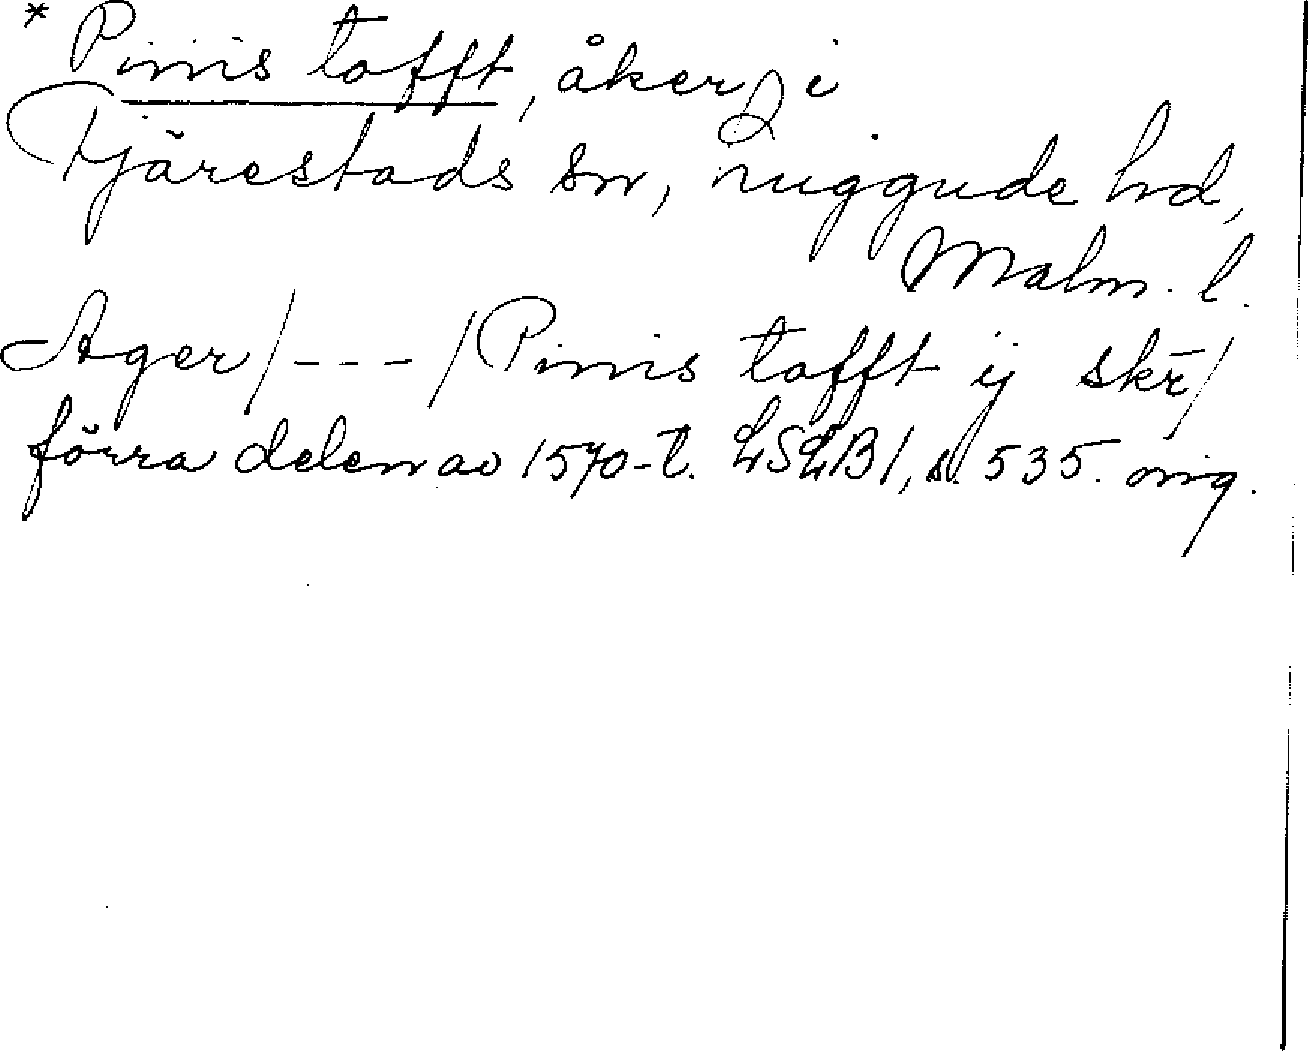 * Pinis tofft, åker, i
Fjärestads sn, Luggude hd,
Malm. l.
Ager/---/Pinis tofft ij skr̄/
förra delen av 1570-t. LSLB1, s. 535. orig.